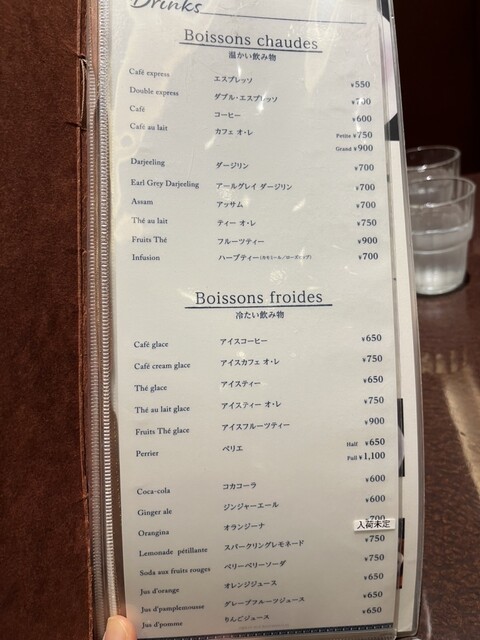 Drinks
Boissons chaudes
温かい飲み物
Café express エスプレッソ ¥550
Double express ダブル・エスプレッソ ¥700
Café コーヒー ¥600
Café au lait カフェ オ・レ Petite ¥750
Grand ¥900
Darjeeling ダージリン ¥700
Earl Grey Darjeeling アールグレイ ダージリン ¥700
Assam アッサム ¥700
Thé au lait ティー オ・レ ¥750
Fruits Thé フルーツティー ¥900
Infusion ハーブティー(カモミール/ローズヒップ) ¥700
Boissons froides
冷たい飲み物
Café glace アイスコーヒー ¥650
Café cream glace アイスカフェ オ・レ ¥750
Thé glace アイスティー ¥650
Thé au lait glace アイスティー オ・レ ¥750
Fruits Thé glace アイスフルーツティー ¥900
Perrier ペリエ Half ¥650
Full ¥1,100
Coca-cola コカコーラ ¥600
Ginger ale ジンジャーエール ¥600
Orangina オランジーナ 入荷未定
Lemonade pétillante スパークリングレモネード ¥750
Soda aux fruits rouges ベリーベリーソーダ ¥750
Jus d'orange オレンジジュース ¥650
Jus d'pamplemousse グレープフルーツジュース ¥650
Jus d'pomme りんごジュース ¥650